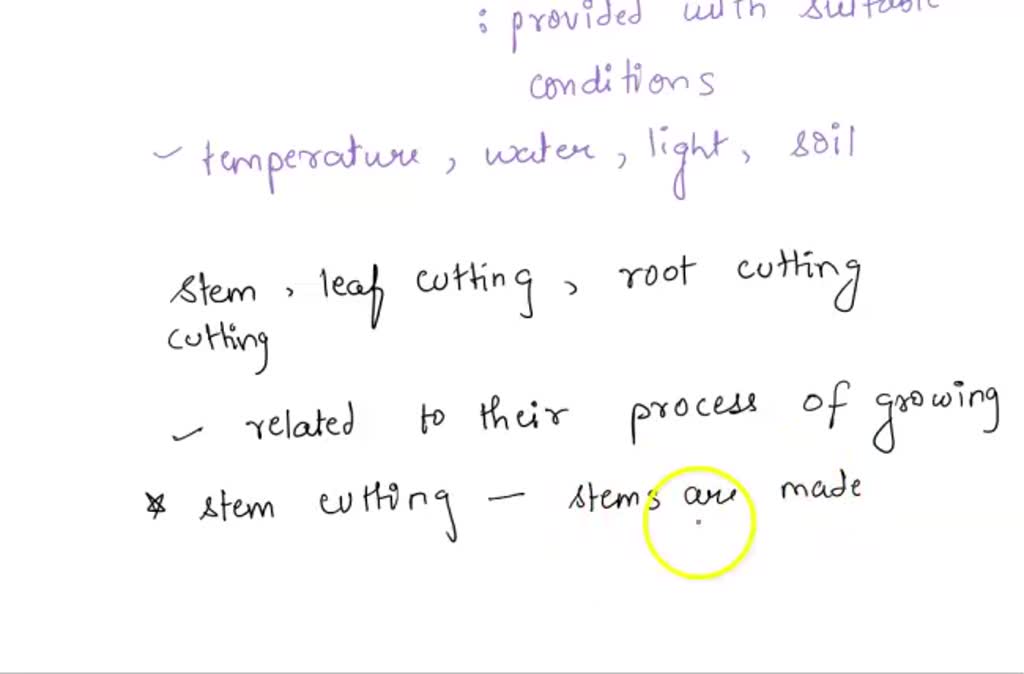 : provided with suitable
conditions
✓ temperature, water, light, soil
stem, leaf cutting, root cutting
cutting
✓ related to their process of growing
* stem cutting — stems are made